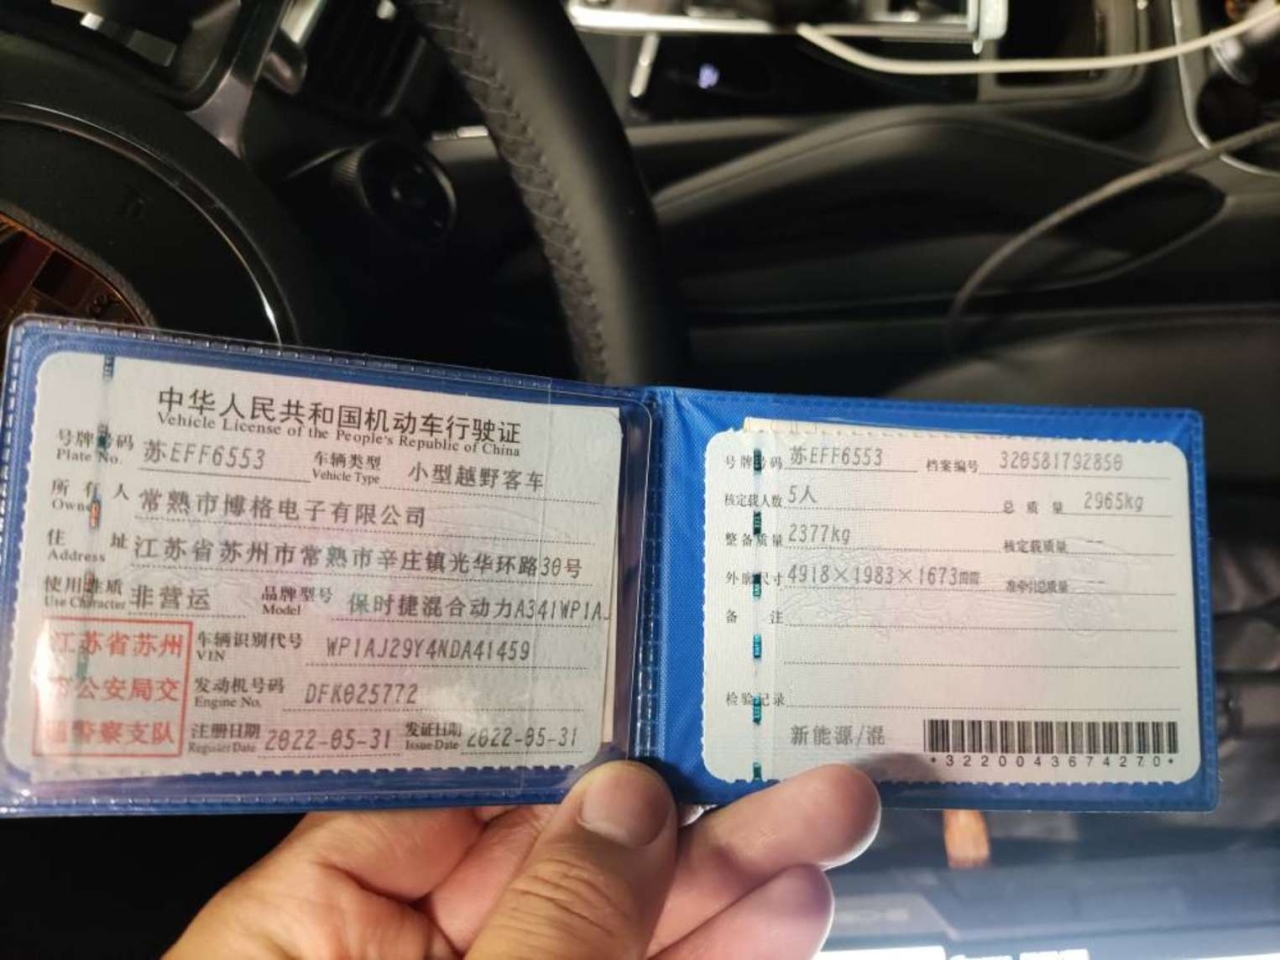 中华人民共和国机动车行驶证
Vehicle License of the People's Republic of China
号牌号码 苏EFF6553 车辆类型 小型越野客车
Plate No. Vehicle Type
所有人 常熟市博格电子有限公司
Owner
住址 江苏省苏州市常熟市辛庄镇光华环路30号
Address
使用性质 非营运 品牌型号 保时捷混合动力A341WP1AJ
Use Character Model
江苏省苏州
市公安局交
通警察支队
车辆识别代号 WP1AJ29Y4NDA41459
VIN
发动机号码 DFK025772
Engine No.
注册日期 2022-05-31 发证日期 2022-05-31
Register Date Issue Date
号牌号码 苏EFF6553 档案编号 320581792850
核定载人数 5人 总质量 2965kg
整备质量 2377kg 核定载质量 --
外廓尺寸 4918×1983×1673mm 准牵引总质量 --
备注
检验记录
新能源/混
*3220043674270*